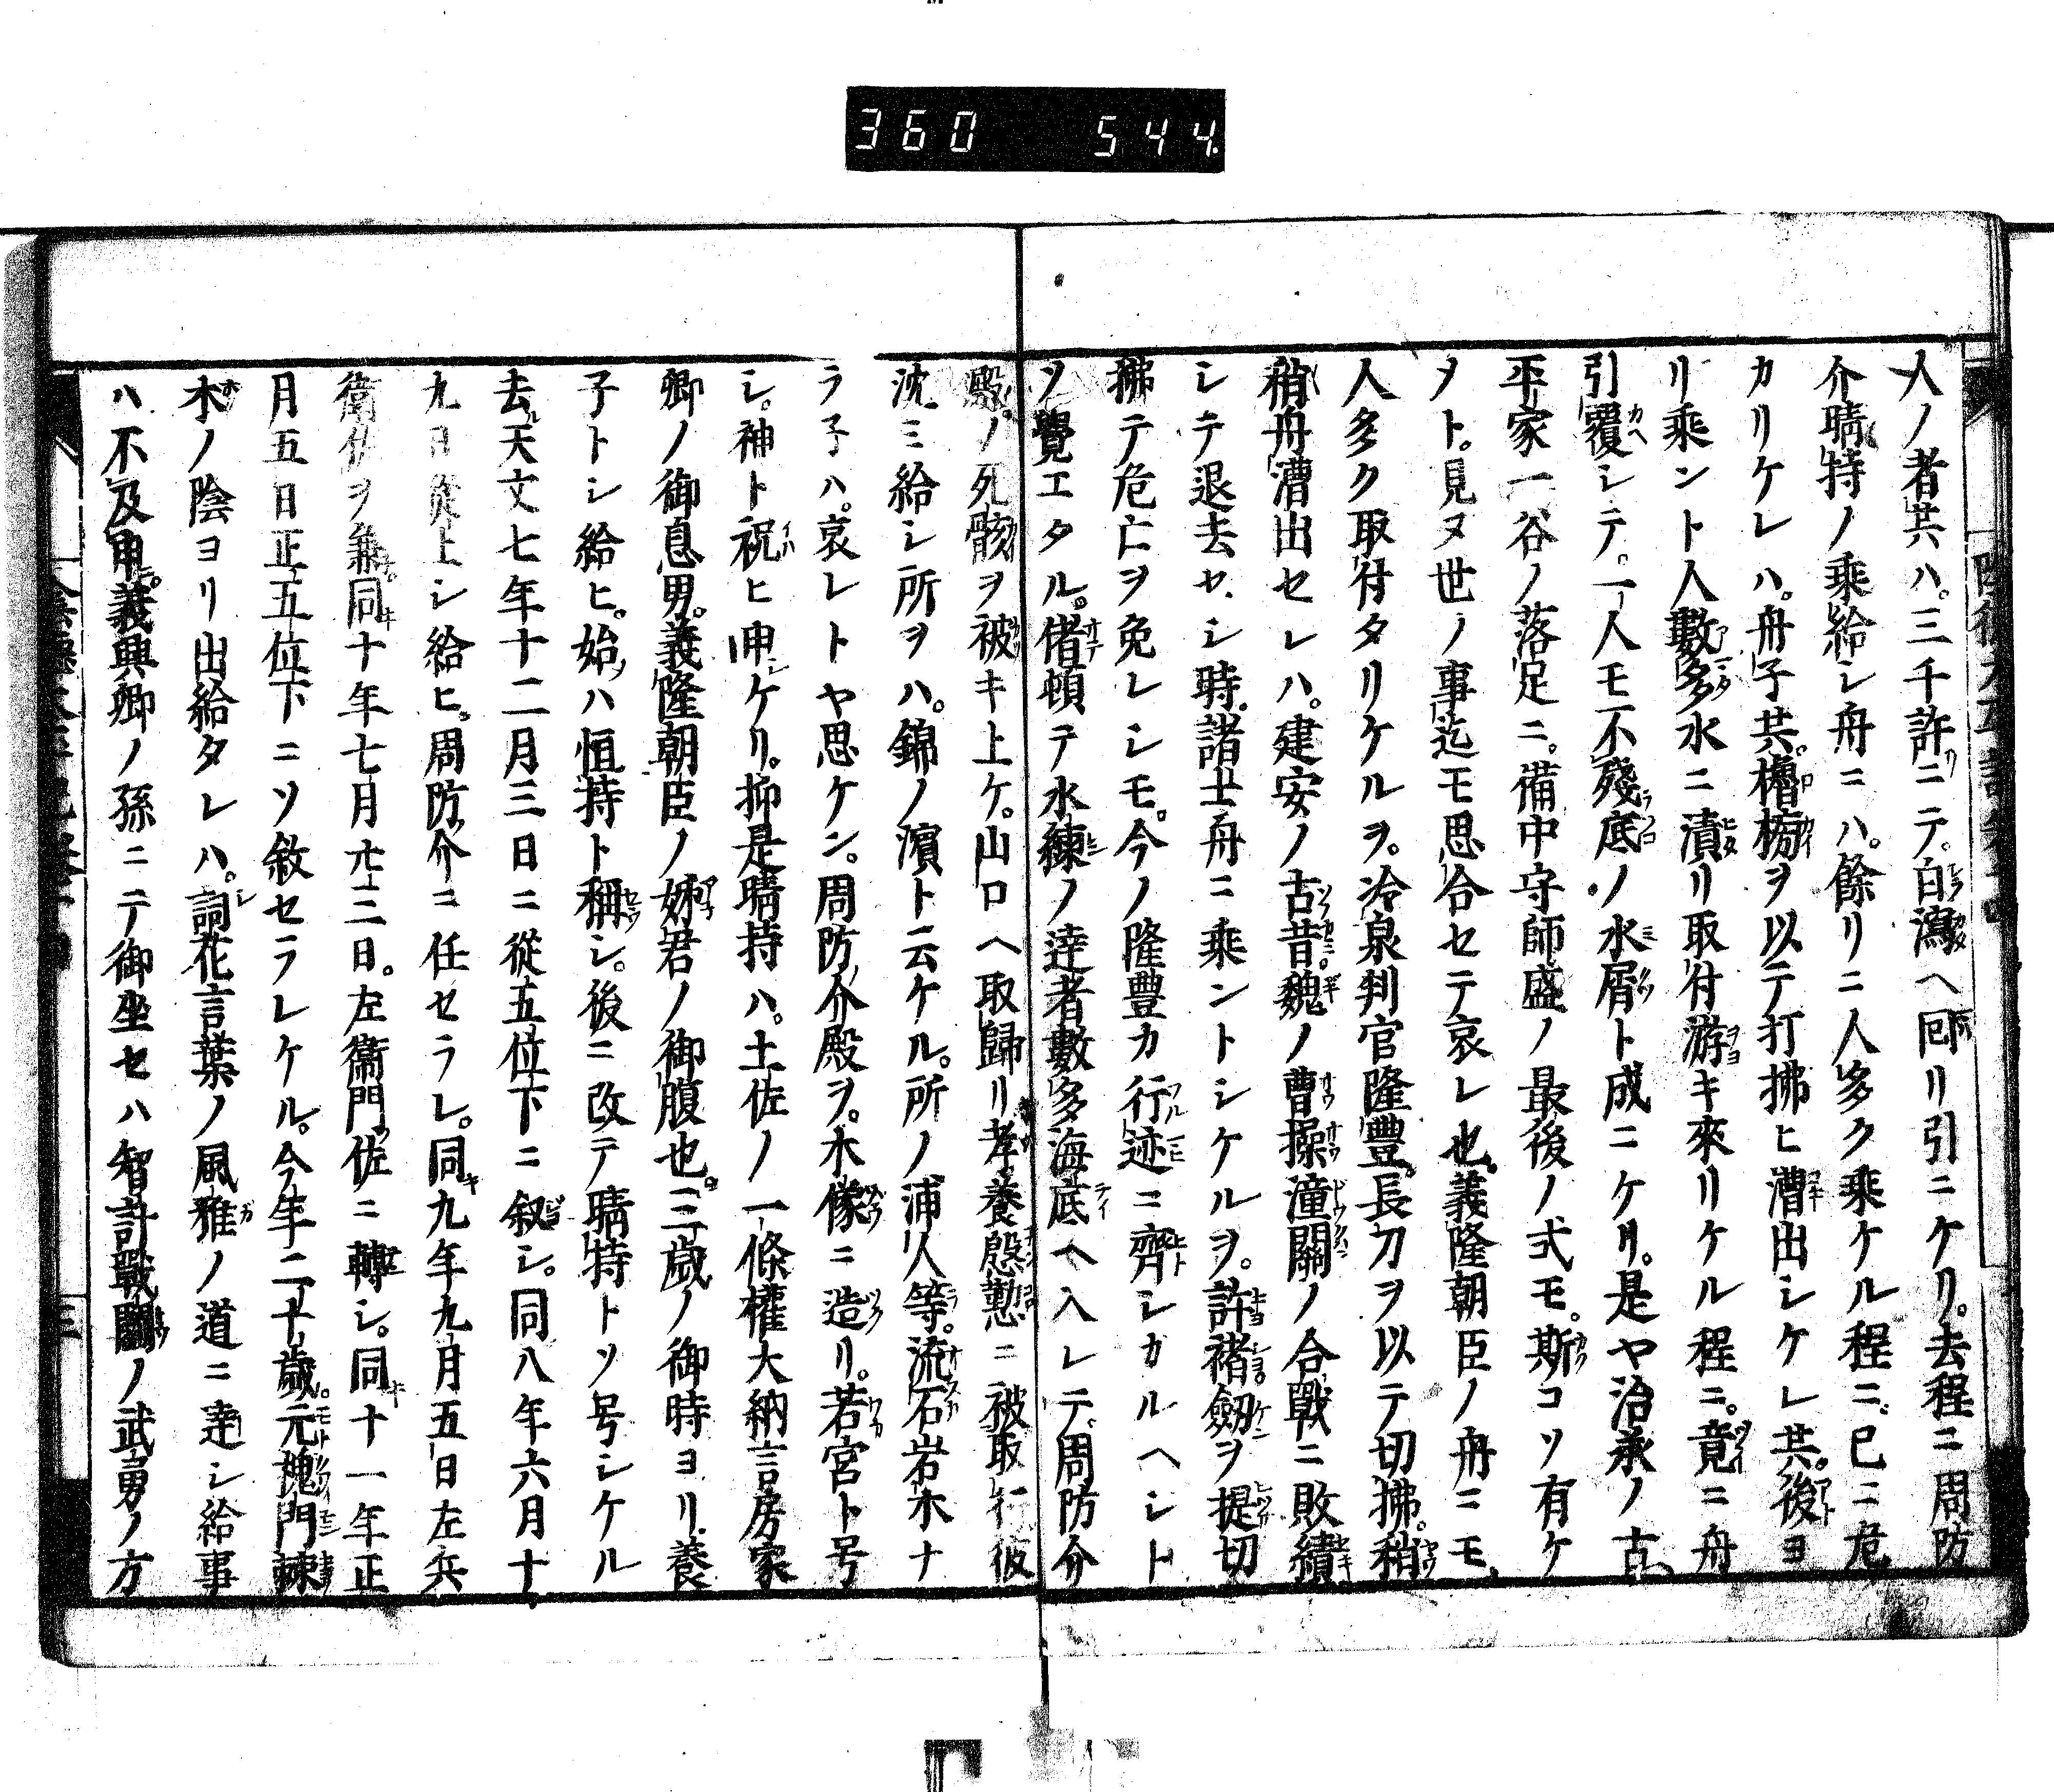 360 544
人ノ者共ハ。三千許ニテ。白潟ヘ囘リ引ニケリ。去程ニ周防
介晴持ノ乗給シ舟ニハ。餘リニ人多ク乗ケル程ニ。已ニ危
カリケレハ。舟子共。櫓械ヲ以テ打拂ヒ漕出シケレ共。後ヨ
リ乗ント人數多水ニ漬リ取付游キ來リケル程ニ。竟ニ舟
引覆シテ。一人モ不殘底ノ水屑ト成ニケリ。是ヤ治承ノ古
平家一谷ノ落足ニ。備中守師盛ノ最後ノ式モ。斯コソ有ケ
メト。見ヌ世ノ事迄モ思合セテ哀レ也。義隆朝臣ノ舟ニモ、
人多ク取付タリケルヲ。冷泉判官隆豊。長刀ヲ以テ切拂。稍
稍舟漕出セレハ。建安ノ古昔。魏ノ曹操潼關ノ合戰ニ敗績
シテ退去セシ時。諸士舟ニ乗ントシケルヲ。許褚劔ヲ提切
拂テ危亡ヲ免レシモ。今ノ隆豊カ行迹ニ齊シカルヘシト
ソ覺エタル。偖頓テ水練ノ達者數多海底ヘ入レテ。周防介
殿ノ死骸ヲ被キ上ケ。山口ヘ取歸リ孝養慇懃ニ被取行彼
沈ミ給シ所ヲハ。錦ノ濱ト云ケル。所ノ浦人等。流石岩木ナ
ラ子ハ。哀レトヤ思ケン。周防介殿ヲ。木像ニ造リ。若宮ト号
シ。神ト祝ヒ申ケリ。抑是晴持ハ。土佐ノ一條權大納言房家
卿ノ御息男。義隆朝臣ノ姊君ノ御腹也。三歳ノ御時ヨリ。養
子トシ給ヒ。始ハ恒持ト稱シ。後ニ改テ晴持トソ号シケル
去天文七年十二月三日ニ從五位下ニ叙シ。同八年六月十
九日從上シ給ヒ。周防介ニ任セラレ。同九年九月五日左兵
衛佐ヲ兼。同十年七月廿二日。左衞門佐ニ轉シ。同十一年正
月五日正五位下ニソ敘セラレケル。今年二十歳。元槐門棘
木ノ陰ヨリ出給タレハ。詞花言葉ノ風雅ノ道ニ達シ給事
ハ不及申。義興卿ノ孫ニテ御坐セハ智計戰鬪ノ武勇ノ方
三